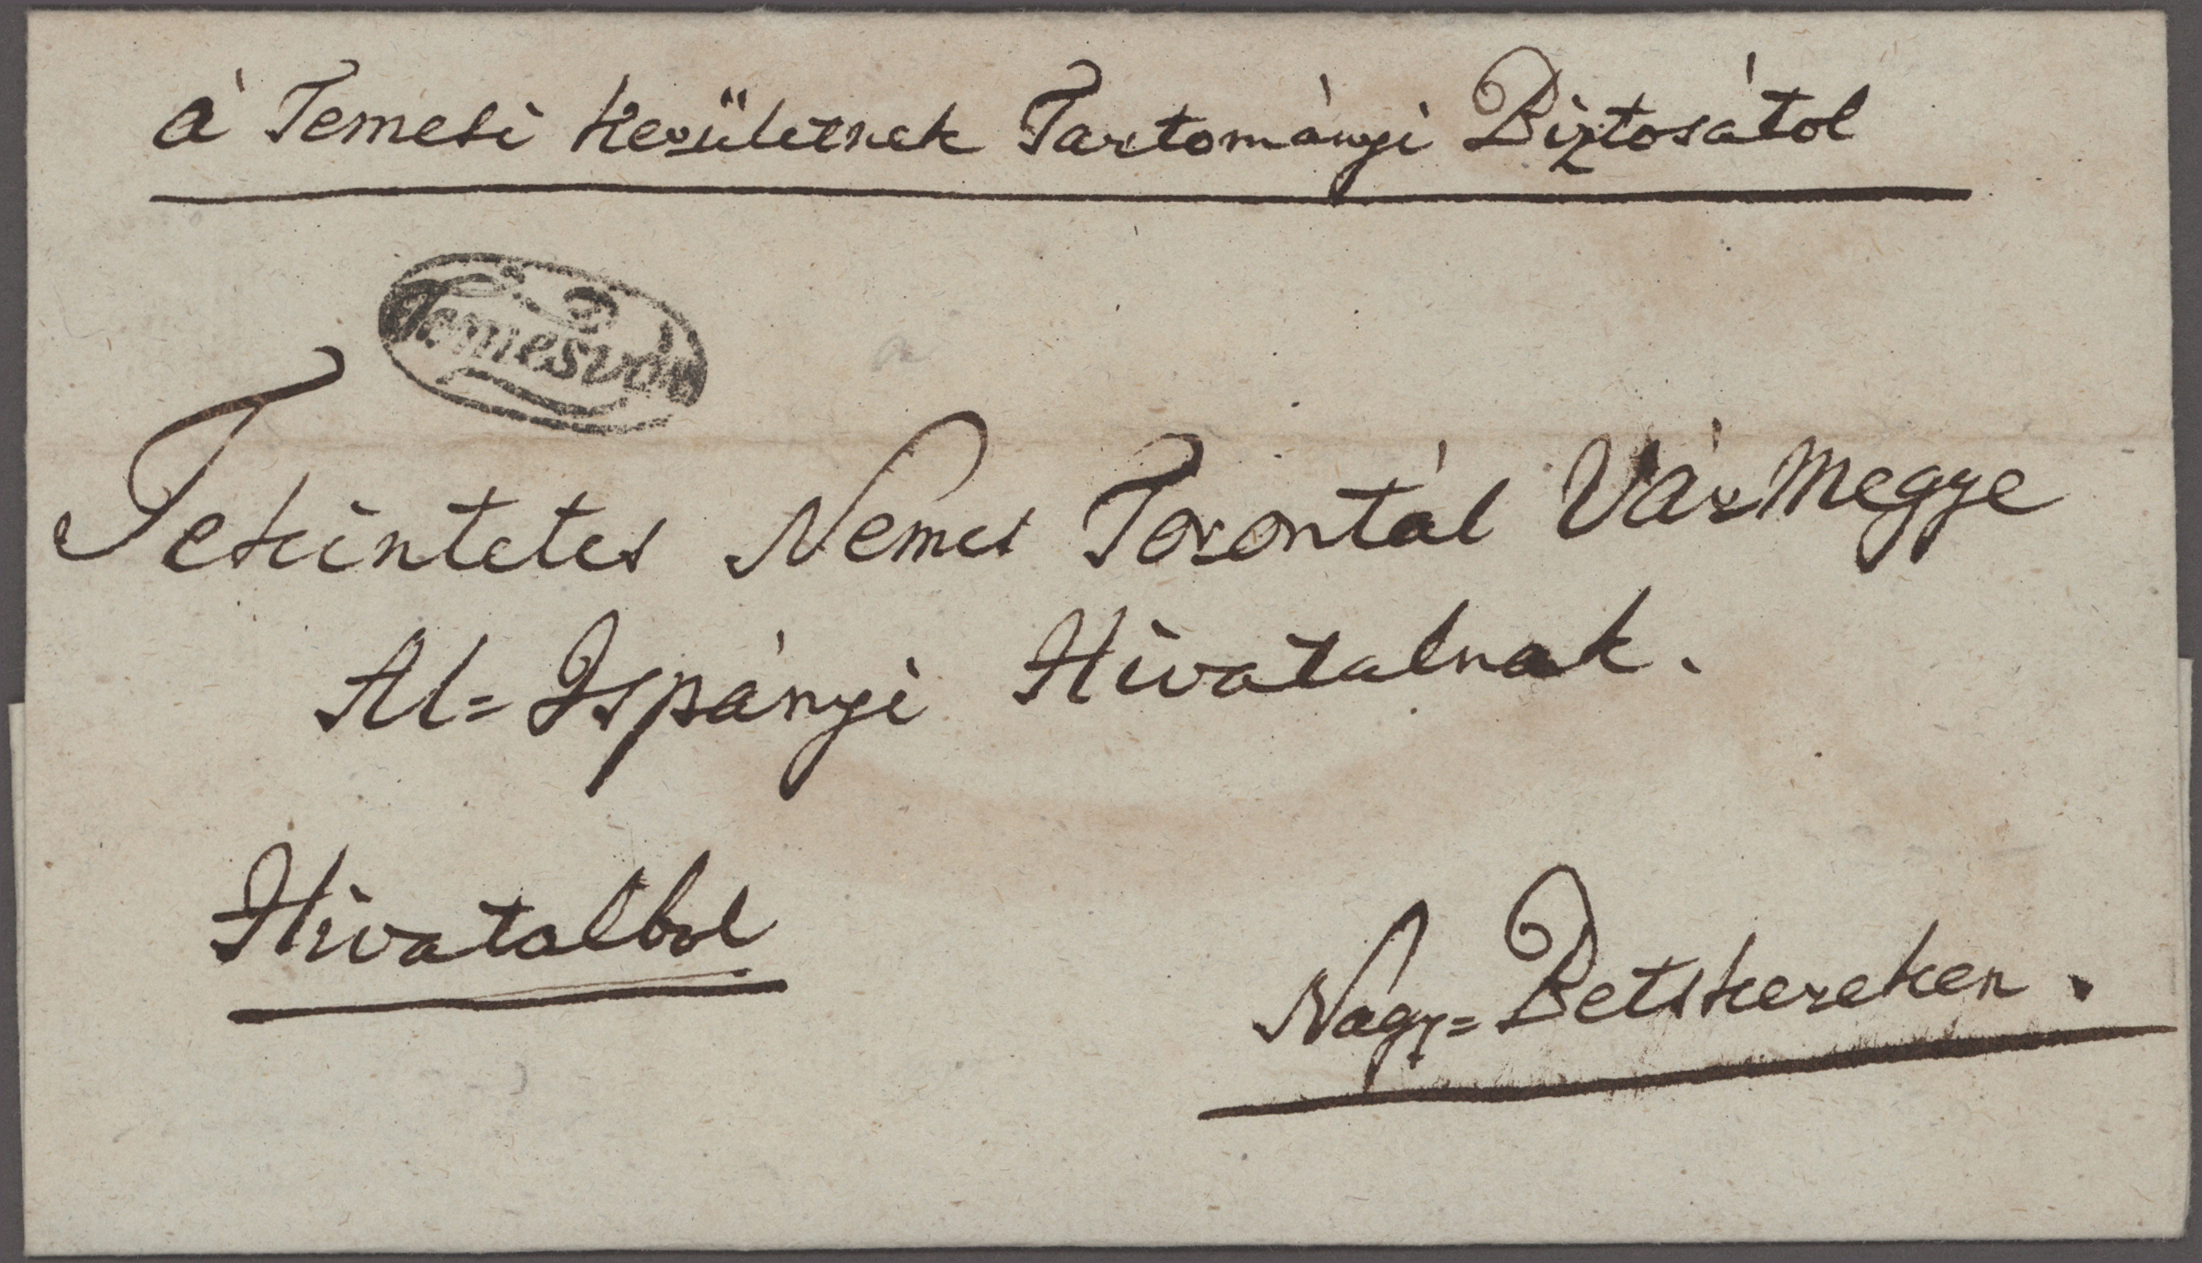 a' Temesi Kerületnek Tartományi Biztosátol
Temesvár
Tekintetes Nemes Torontál Vármegye
Al=Ispányi Hivatalnak.
Hivatalbol
Nagy=Betskereken.